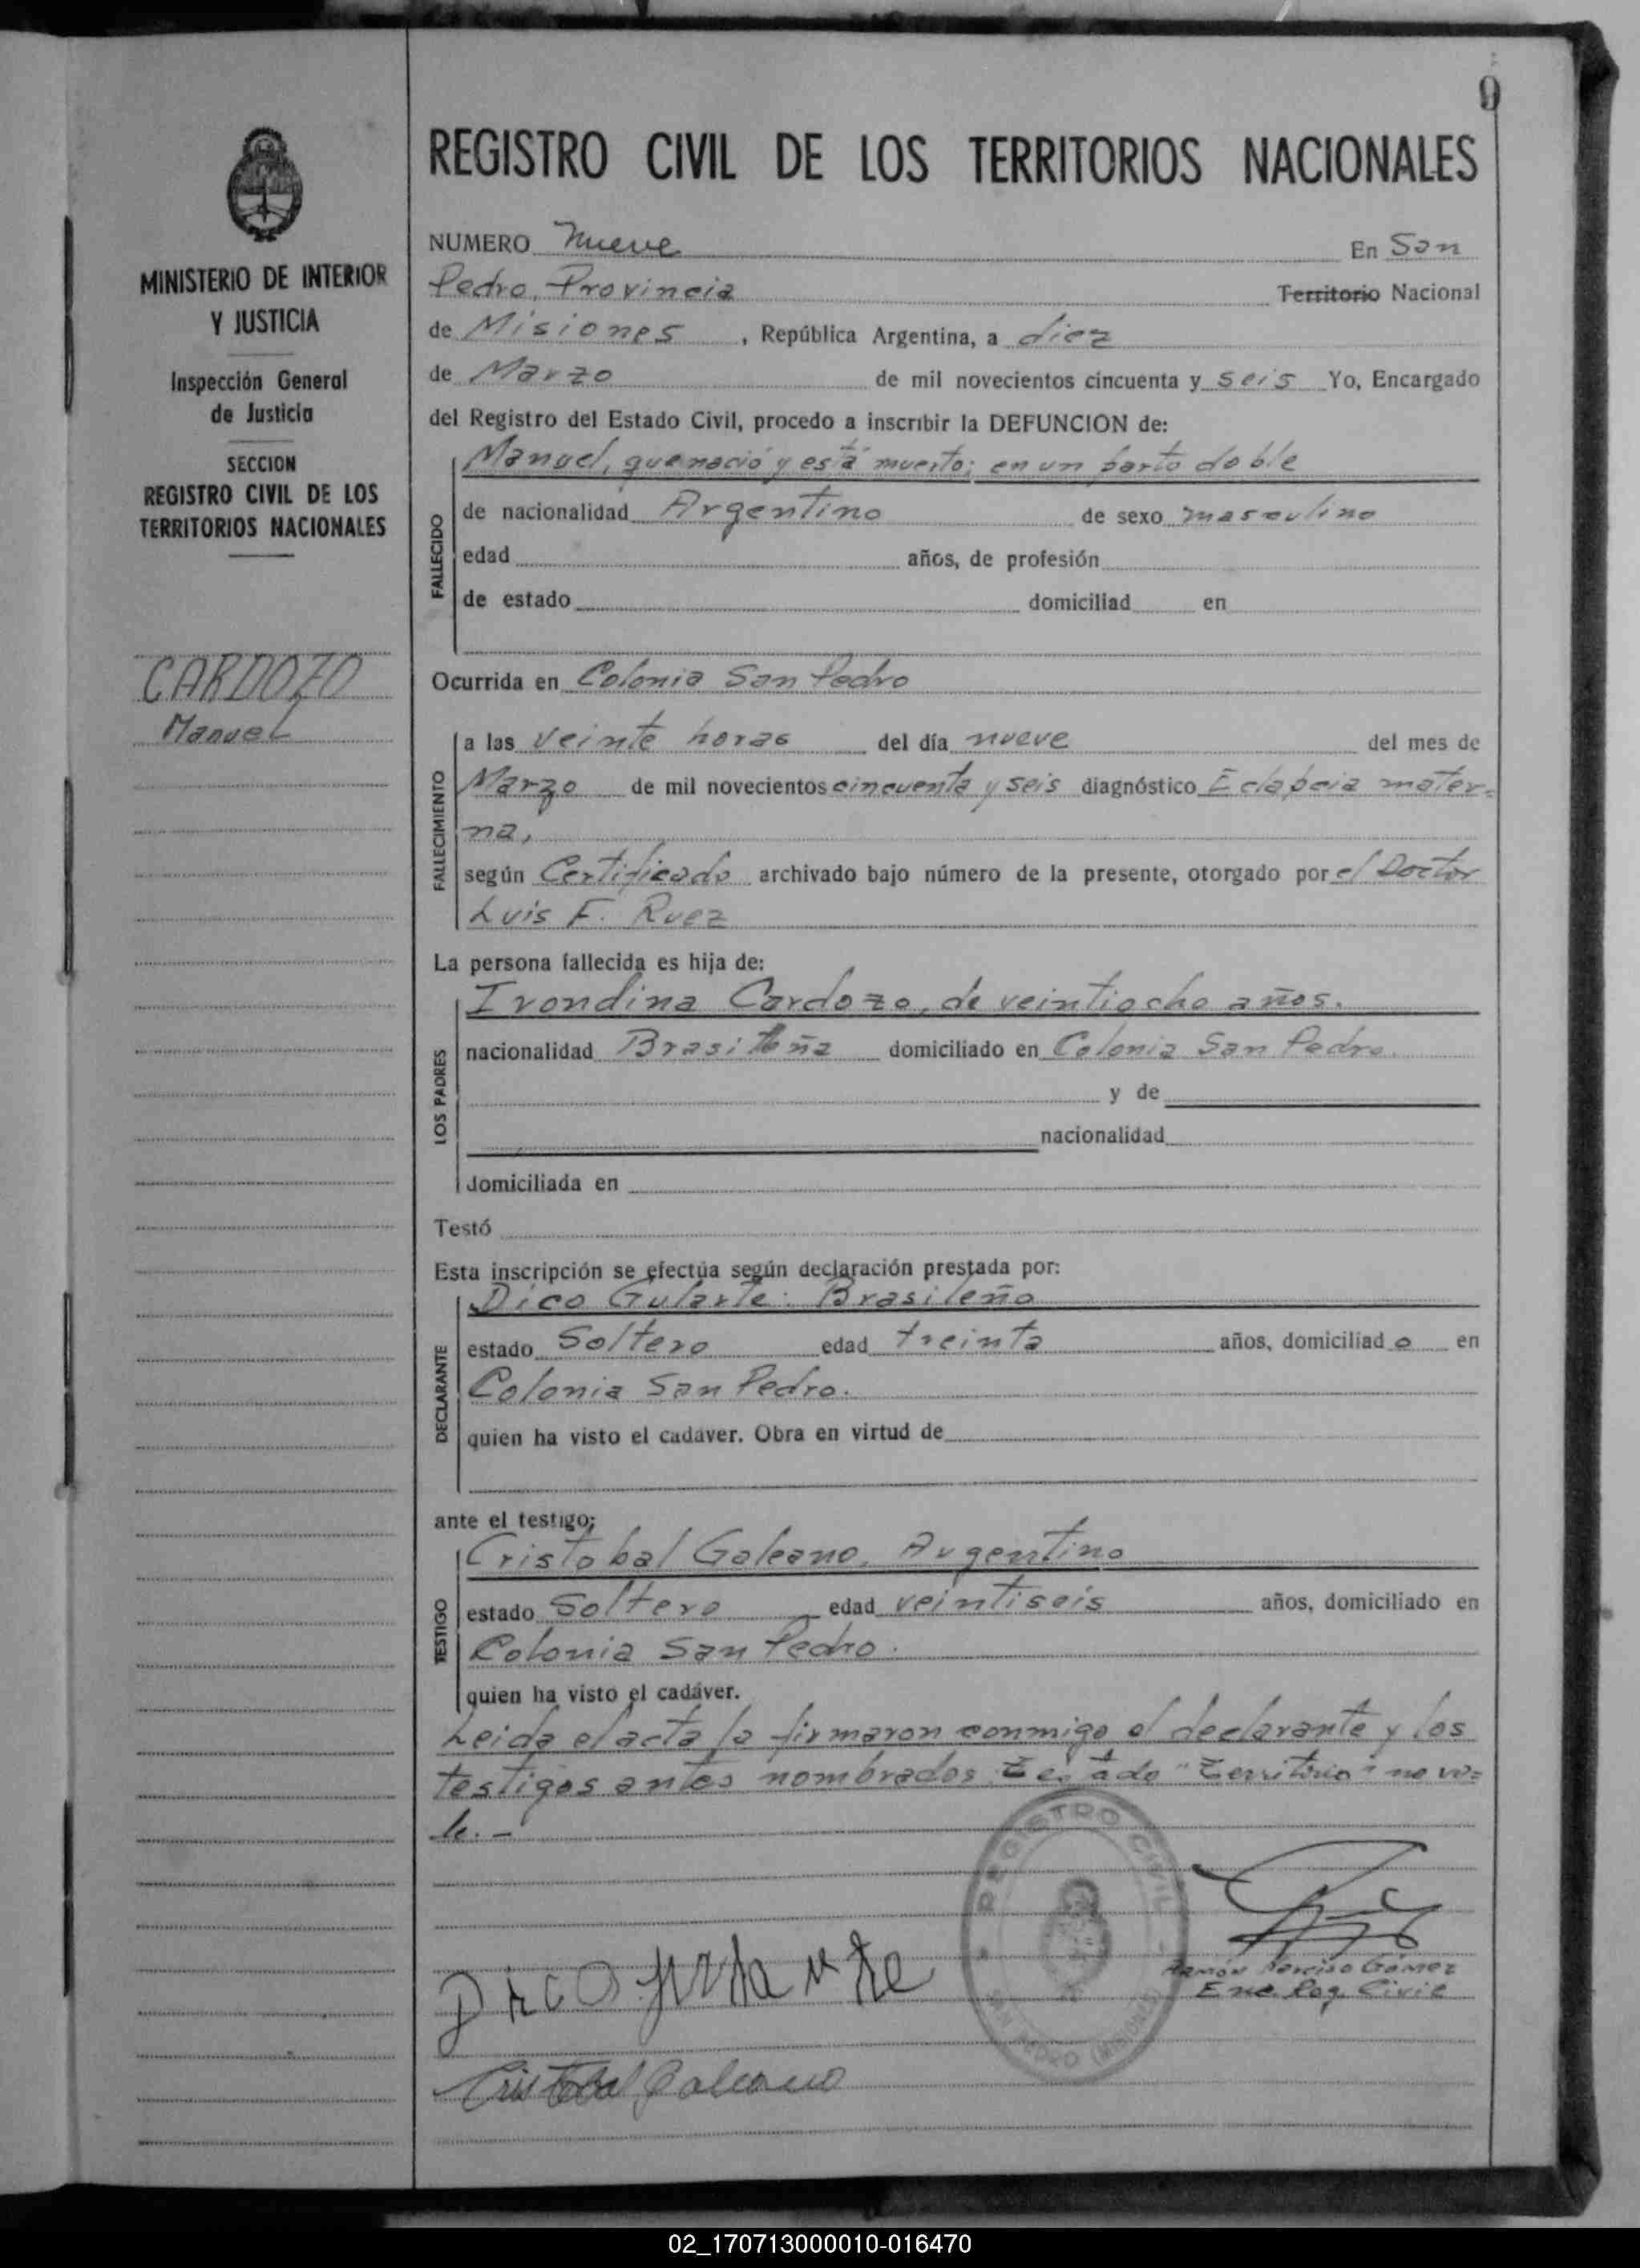 9
REGISTRO CIVIL DE LOS TERRITORIOS NACIONALES
MINISTERIO DE INTERIOR
Y JUSTICIA
Inspección General
de Justicia
SECCION
REGISTRO CIVIL DE LOS
TERRITORIOS NACIONALES
CARDOZO
Manuel
NUMERO Nueve En San
Pedro, Provincia Territorio Nacional
de Misiones, República Argentina, a diez
de Marzo de mil novecientos cincuenta y seis Yo, Encargado
del Registro del Estado Civil, procedo a inscribir la DEFUNCION de:
FALLECIDO
Manuel, que nació y está muerto; en un parto doble
de nacionalidad Argentino de sexo masculino
edad años, de profesión
de estado domiciliad en
Ocurrida en Colonia San Pedro
FALLECIMIENTO
a las veinte horas del día nueve del mes de
Marzo de mil novecientos cincuenta y seis diagnóstico Eclapcia mater=
na,
según Certificado archivado bajo número de la presente, otorgado por el Doctor
Luis F. Ruez
La persona fallecida es hija de:
LOS PADRES
Irondina Cardozo, de veintiocho años.
nacionalidad Brasileña domiciliado en Colonia San Pedro.
y de
nacionalidad
domiciliada en
Testó
Esta inscripción se efectúa según declaración prestada por:
DECLARANTE
Dico Gularte: Brasileño
estado Soltero edad treinta años, domiciliad o en
Colonia San Pedro.
quien ha visto el cadáver. Obra en virtud de
ante el testigo;
TESTIGO
Cristobal Galeano, Argentino
estado Soltero edad veintiseis años, domiciliado en
Colonia San Pedro.
quien ha visto el cadáver.
Leida el acta la firmaron conmigo el declarante y los
testigos antes nombrados. Testado "Territorio" no va=
le.-
REGISTRO CIVIL
SAN PEDRO (MISIONES)
Ramón Narciso Gómez
Enc. Reg. Civil
Dico gularte
Cristobal Galeano
02_170713000010-016470